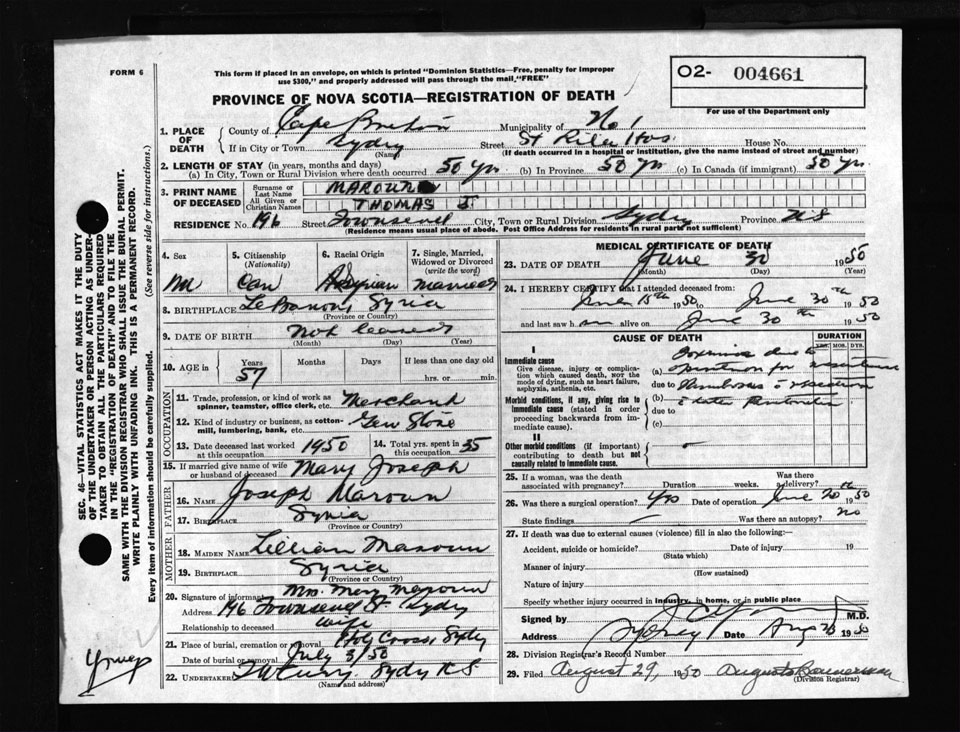 FORM 6
This form if placed in an envelope, on which is printed "Dominion Statistics—Free, penalty for improper
use $300," and properly addressed will pass through the mail "FREE"
O2- 004661
For use of the Department only
PROVINCE OF NOVA SCOTIA—REGISTRATION OF DEATH
1. PLACE OF DEATH
County of Cape Breton Municipality of No 1
If in City or Town Sydney (Name) Street St Hos. House No.
(If death occurred in a hospital or institution, give the name instead of street and number)
2. LENGTH OF STAY (in years, months and days)
(a) In City, Town or Rural Division where death occurred 50 yrs (b) In Province 50 yrs (c) In Canada (if immigrant) 50 yrs.
3. PRINT NAME OF DECEASED
Surname or Last Name MAROUN
All Given or Christian Names THOMAS J
RESIDENCE No. 196 Street Townsend City, Town or Rural Division Sydney Province N S
(Residence means usual place of abode. Post Office Address for residents in rural parts not sufficient)
4. Sex M
5. Citizenship (Nationality) Can
6. Racial Origin Syrian
7. Single, Married, Widowed or Divorced (write the word) married
8. BIRTHPLACE Lebanon, Syria
(Province or Country)
9. DATE OF BIRTH Not learned
(Month) (Day) (Year)
10. AGE in Years 57 Months Days If less than one day old
hrs. or min.
OCCUPATION
11. Trade, profession, or kind of work as spinner, teamster, office clerk, etc. Merchant
12. Kind of industry or business, as cotton-mill, lumbering, bank, etc. Gen Store
13. Date deceased last worked at this occupation 1950
14. Total yrs. spent in this occupation 35
15. If married give name of wife or husband of deceased Mary Joseph
FATHER
16. Name Joseph Maroun
17. Birthplace Syria
(Province or Country)
MOTHER
18. Maiden Name Lillian Maroun
19. Birthplace Syria
(Province or Country)
20. Signature of informant Mrs. Mary Maroun
Address 196 Townsend St Sydney
Relationship to deceased wife
21. Place of burial, cremation or removal Holy Cross, Sydney
Date of burial or removal July 3/50
22. UNDERTAKER Curry. Sydney N S
(Name and address)
MEDICAL CERTIFICATE OF DEATH
23. DATE OF DEATH June 30 1950
(Month) (Day) (Year)
24. I HEREBY CERTIFY that I attended deceased from:
June 15th 1950 to June 30th 1950
and last saw h im alive on June 30th 1950
CAUSE OF DEATH
DURATION
YRS. MOS. DYS.
I
Immediate cause
Give disease, injury or complication which caused death, NOT the mode of dying, such as heart failure, asphyxia, asthenia, etc.
(a) due to operation for
due to
Morbid conditions, if any, giving rise to immediate cause (stated in order proceeding backwards from immediate cause).
(b)
due to
(c)
II
Other morbid conditions (if important) contributing to death but not causally related to immediate cause.
25. If a woman, was the death associated with pregnancy? Duration weeks. Was there delivery?
26. Was there a surgical operation? Yes Date of operation June 20th 1950
State findings Was there an autopsy? no
27. If death was due to external causes (violence) fill in also the following:—
Accident, suicide or homicide? Date of injury 19
(State which)
Manner of injury
(How sustained)
Nature of injury
Specify whether injury occurred in industry, in home, or in public place
Signed by M.D.
Address Sydney Date Aug 20 1950
28. Division Registrar's Record Number
29. Filed August 29, 1950
(Division Registrar)
SEC. 46—VITAL STATISTICS ACT MAKES IT THE DUTY
OF THE UNDERTAKER OR PERSON ACTING AS UNDERTAKER TO OBTAIN ALL THE PARTICULARS REQUIRED
IN THE "REGISTRATION OF DEATH" AND TO FILE THE
SAME WITH THE DIVISION REGISTRAR WHO SHALL ISSUE THE BURIAL PERMIT.
WRITE PLAINLY WITH UNFADING INK. THIS IS A PERMANENT RECORD.
Every item of information should be carefully supplied. (See reverse side for instructions.)